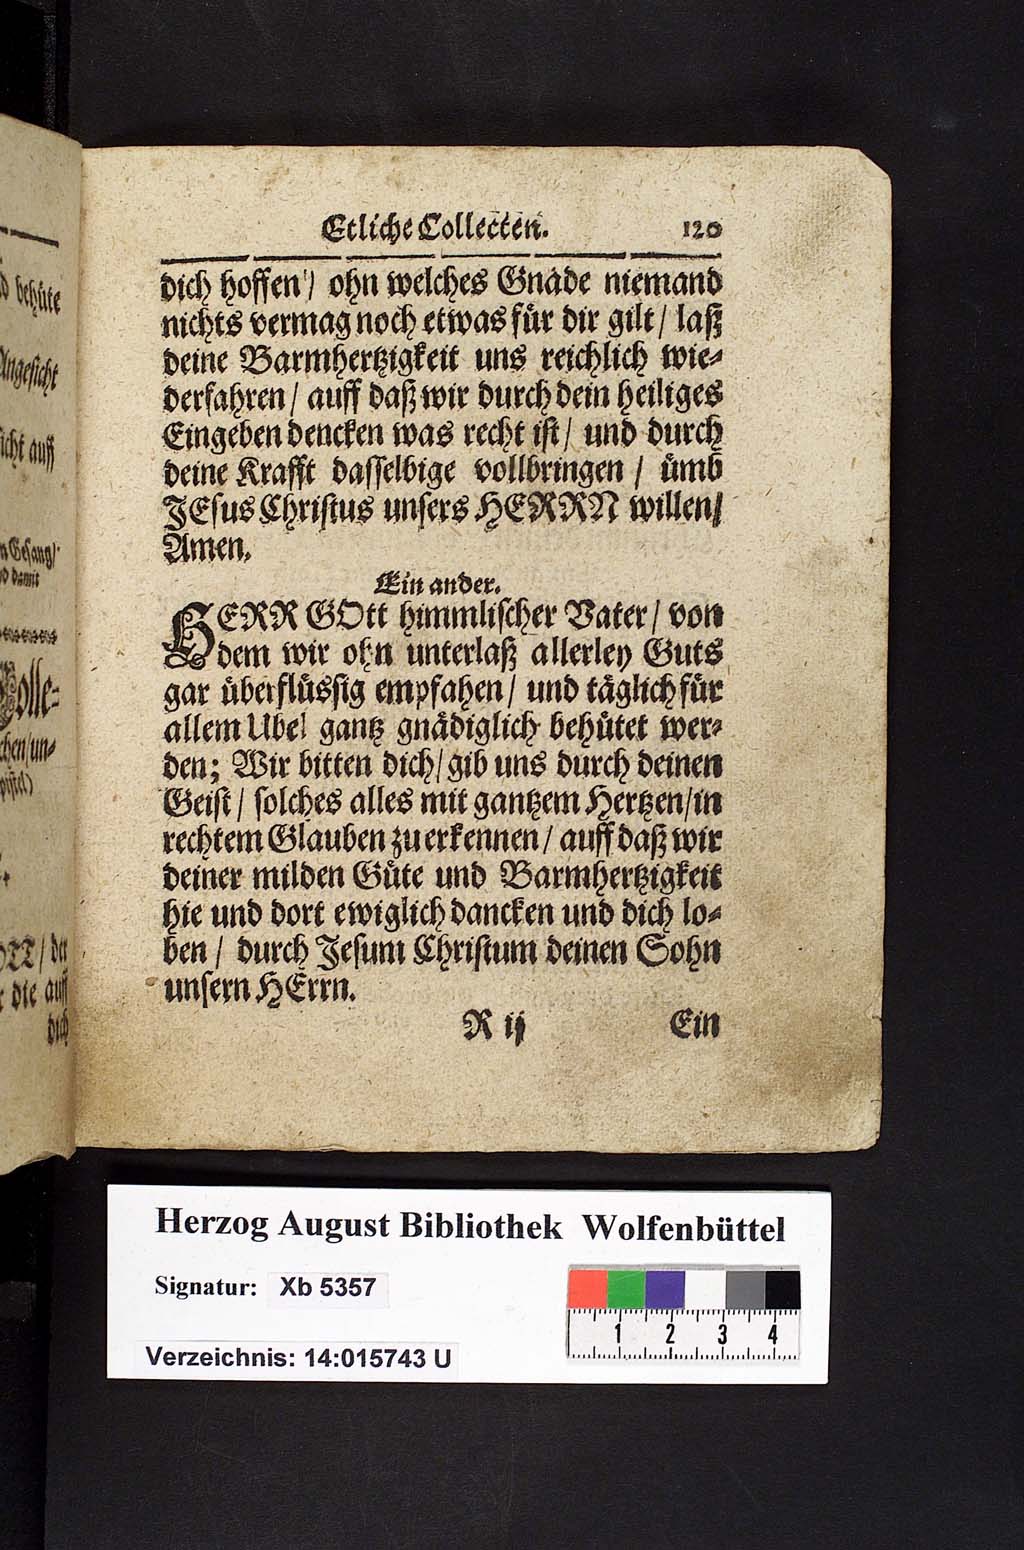 Etliche Collecten. 120
dich hoffen / ohn welches Gnade niemand
nichts vermag noch etwas für dir gilt / laß
deine Barmhertzigkeit uns reichlich wie-
derfahren / auff daß wir durch dein heiliges
Eingeben dencken was recht ist / und durch
deine Krafft dasselbige vollbringen / ümb
JEsus Christus unsers HERRN willen /
Amen.
Ein ander.
HERR GOtt himmlischer Vater / von
dem wir ohn unterlaß allerley Guts
gar überflüssig empfahen / und täglich für
allem Ubel gantz gnädiglich behütet wer-
den; Wir bitten dich / gib uns durch deinen
Geist / solches alles mit gantzem Hertzen / in
rechtem Glauben zu erkennen / auff daß wir
deiner milden Güte und Barmhertzigkeit
hie und dort ewiglich dancken und dich lo-
ben / durch Jesum Christum deinen Sohn
unsern HErrn.
R ij Ein
behüte
Angesicht
auff
Gesang /
damit
Colle-
un-
/ der
die auff
dich
Herzog August Bibliothek Wolfenbüttel
Signatur: Xb 5357
Verzeichnis: 14:015743 U
1 2 3 4